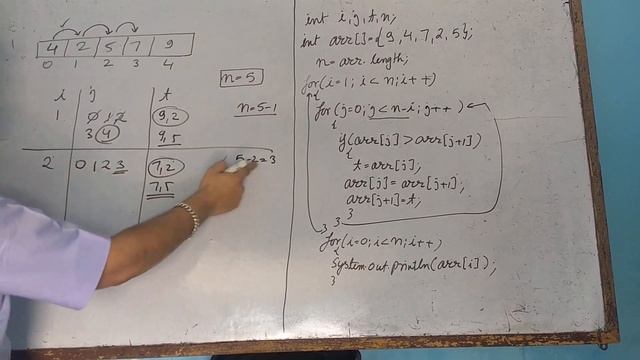 4 2 5 7 9
0 1 2 3 4
n=5
i j t
1 0 1 2 9,2 n=5-1
3 4 9,5
2 0 1 2 3 7,2 5-2=3
7,5
int i,j,t,n;
int arr[]={9,4,7,2,5};
n=arr.length;
for(i=1;i<n;i++)
{
for(j=0;j<n-i;j++)
{
if(arr[j]>arr[j+1])
{
t=arr[j];
arr[j]=arr[j+1];
arr[j+1]=t;
}
} }
for(i=0;i<n;i++)
{
System.out.println(arr[i]);
}